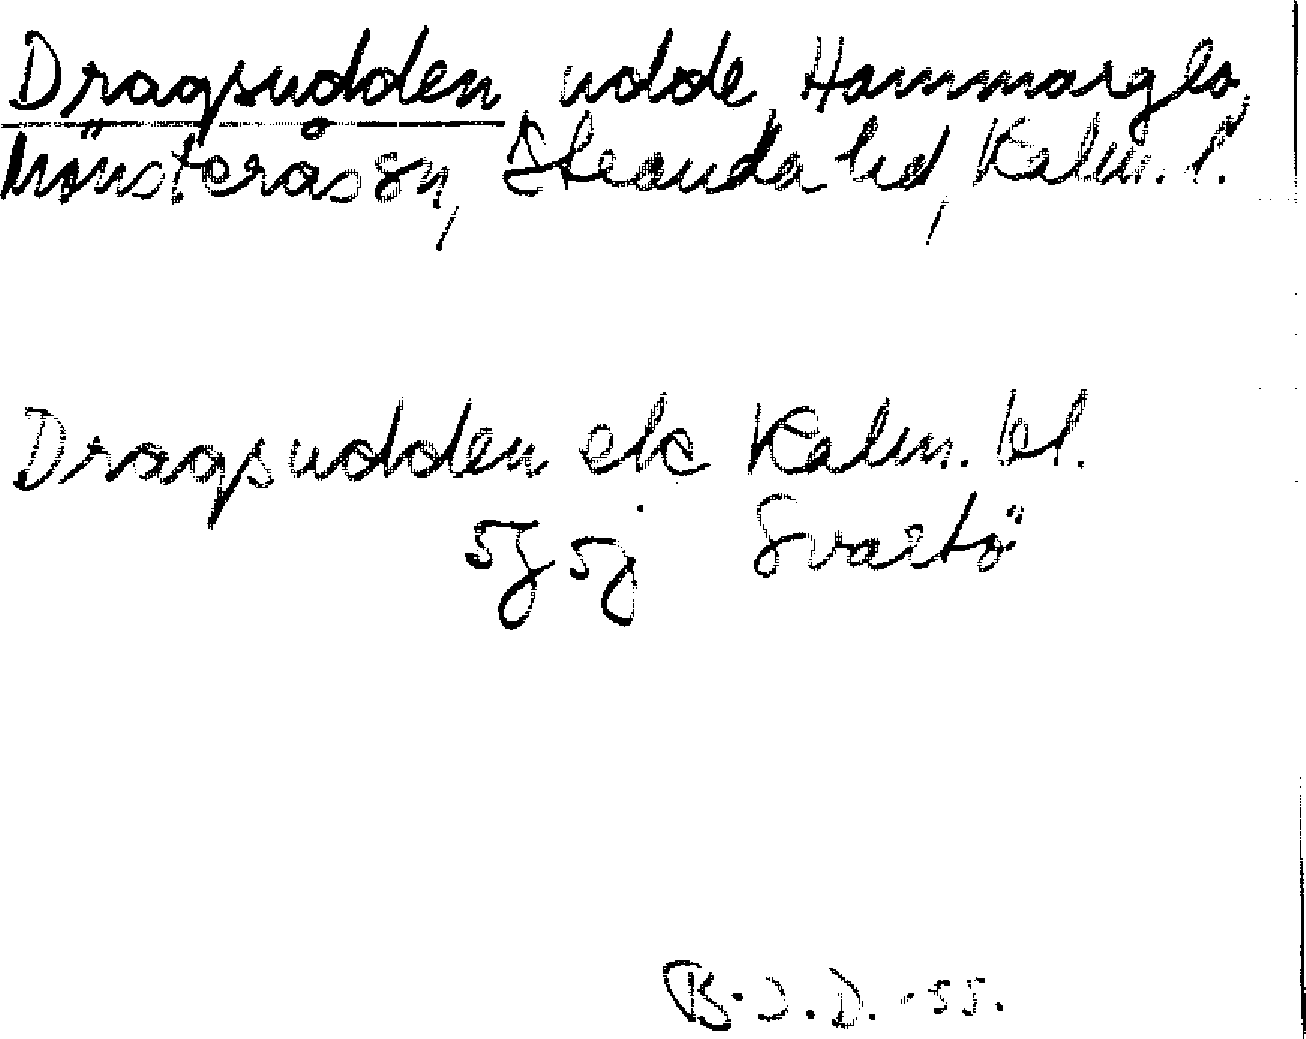 Dragsudden udde Hammarglo,
Mönsterås sn, Stranda hd, Kalm. l.
Dragsudden ek Kalm. bl.
5g 5j Svartö
B.J.D. -55.